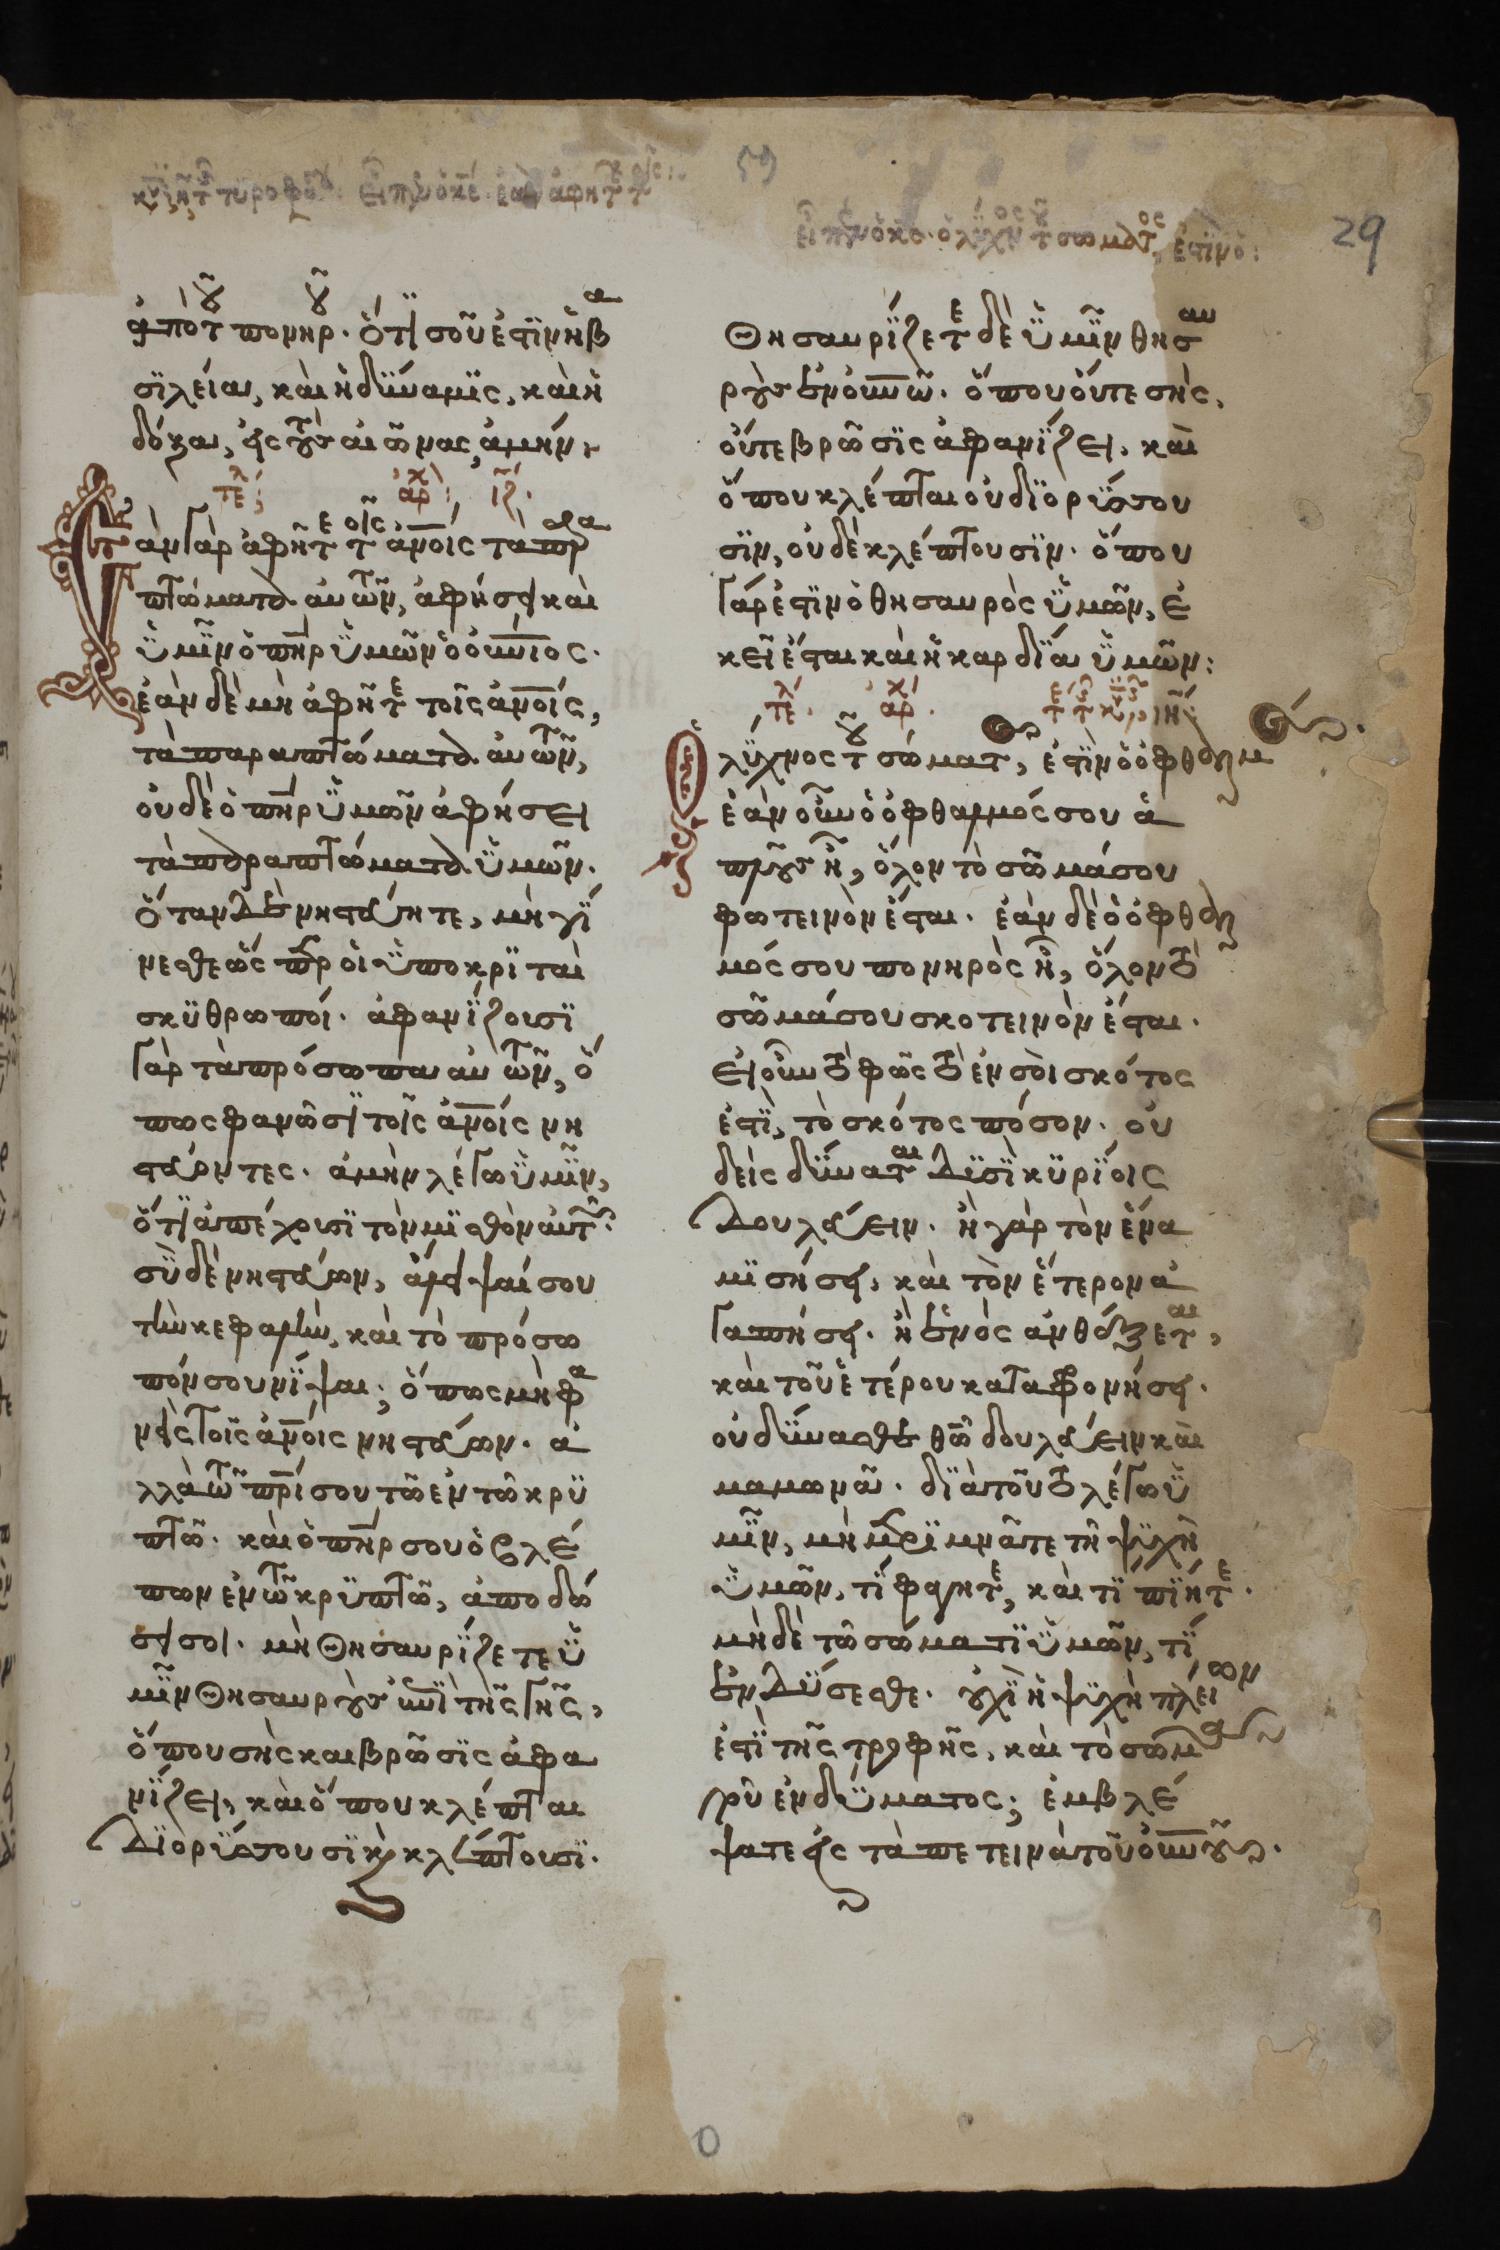 29
ἀπὸ τοῦ πονηροῦ. ὅτι σοῦ ἐστὶν ἡ βα
σιλεία, καὶ ἡ δύναμις, καὶ ἡ
δόξα, εἰς τοὺς αἰῶνας, ἀμήν.
τέλ ἀρχ
Ἐὰν γὰρ ἀφῆτε τοῖς ἀνοις τὰ παρα
πτώματα αὐτῶν, ἀφήσει καὶ
ὑμῖν ὁ πηρ ὑμῶν ὁ οὐνιος.
ἐὰν δὲ μὴ ἀφῆτε τοῖς ἀνοις,
τὰ παραπτώματα αὐτῶν,
οὐδὲ ὁ πηρ ὑμῶν ἀφήσει
τὰ παραπτώματα ὑμῶν.
Ὅταν δὲ νηστεύητε, μὴ γί
νεσθε ὥσπερ οἱ ὑποκριταὶ
σκυθρωποί. ἀφανίζουσι
γὰρ τὰ πρόσωπα αὐτῶν, ὅ
πως φανῶσι τοῖς ἀνοις νη
στεύοντες. ἀμὴν λέγω ὑμῖν,
ὅτι ἀπέχουσι τὸν μισθὸν αὐτῶν.
σὺ δὲ νηστεύων, ἄλειψαί σου
τὴν κεφαλὴν, καὶ τὸ πρόσω
πόν σου νίψαι, ὅπως μὴ φα
νῇς τοῖς ἀνοις νηστεύων. ἀ
λλὰ τῷ πρί σου τῷ ἐν τῷ κρυ
πτῷ. καὶ ὁ πηρ σου ὁ βλέ
πων ἐν τῷ κρυπτῷ, ἀποδώ
σει σοι. μὴ θησαυρίζετε ὑ
μῖν θησαυροὺς ἐπὶ τῆς γῆς,
ὅπου σὴς καὶ βρῶσις ἀφα
νίζει, καὶ ὅπου κλέπται
διορύσσουσι καὶ κλέπτουσι.
θησαυρίζετε δὲ ὑμῖν θησαυ
ροὺς ἐν οὐνῷ. ὅπου οὔτε σὴς,
οὔτε βρῶσις ἀφανίζει, καὶ
ὅπου κλέπται οὐ διορύσσου
σιν, οὐδὲ κλέπτουσιν. ὅπου
γάρ ἐστὶν ὁ θησαυρὸς ὑμῶν, ἐ
κεῖ ἔσται καὶ ἡ καρδία ὑμῶν:
τέλ ἀρχ
Ὁ λύχνος τοῦ σώματος, ἐστὶν ὁ ὀφθαλμος.
ἐὰν οὖν ὁ ὀφθαλμός σου ἁ
πλοῦς ᾖ, ὅλον τὸ σῶμά σου
φωτεινὸν ἔσται. ἐὰν δὲ ὁ ὀφθαλ
μός σου πονηρὸς ᾖ, ὅλον τὸ
σῶμά σου σκοτεινὸν ἔσται.
εἰ οὖν τὸ φῶς τὸ ἐν σοὶ σκότος
ἐστὶ, τὸ σκότος πόσον. οὐ
δεὶς δύναται δυσὶ κυρίοις
δουλεύειν. ἢ γὰρ τὸν ἕνα
μισήσει, καὶ τὸν ἕτερον ἀ
γαπήσει. ἢ ἑνὸς ἀνθέξεται,
καὶ τοῦ ἑτέρου καταφρονήσει.
οὐ δύνασθε θῶ δουλεύειν καὶ
μαμωνᾶ. διὰ τοῦτο λέγω ὑ
μῖν, μὴ μεριμνᾶτε τῇ ψυχῇ
ὑμῶν, τί φάγητε, καὶ τί πίητε.
μηδὲ τῷ σώματι ὑμῶν, τί
ἐνδύσεσθε. οὐχὶ ἡ ψυχὴ πλεῖον
ἐστὶ τῆς τροφῆς, καὶ τὸ σῶμα
τοῦ ἐνδύματος; ἐμβλέ
ψατε εἰς τὰ πετεινὰ τοῦ οὐνοῦ.